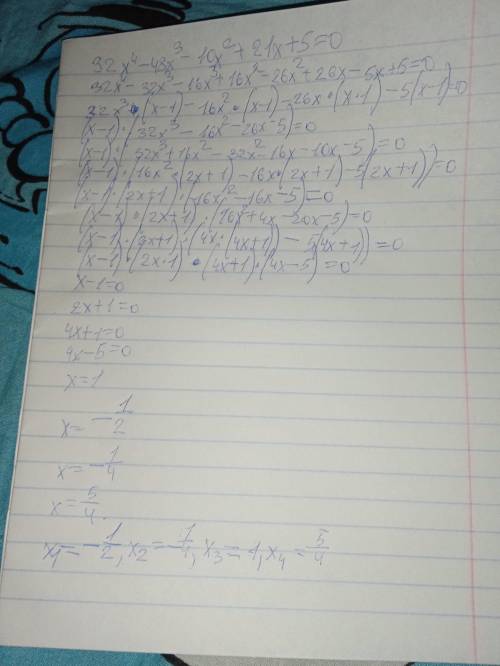 32x⁴-48x³-10x²+21x+5=0
32x-32x³-16x³+16x²-26x²+26x-5x+5=0
32x³•(x-1)-16x²•(x-1)-26x•(x-1)-5(x-1)=0
(x-1)•(32x³-16x²-26x-5)=0
(x-1)•(32x³+16x²-32x²-16x-10x-5)=0
(x-1)•(16x²•(2x+1)-16x•(2x+1)-5(2x+1))=0
(x-1)•(2x+1)•(16x²-16x-5)=0
(x-1)•(2x+1)•(16x+4x-20x-5)=0
(x-1)•(2x+1)•(4x•(4x+1)-5(4x+1))=0
(x-1)•(2x•1)•(4x+1)•(4x-5)=0
x-1=0
2x+1=0
4x+1=0
4x-5=0
x=1
x=-1/2
x=-1/4
x=5/4
x₁=-1/2, x₂=-1/4, x₃=1, x₄=5/4